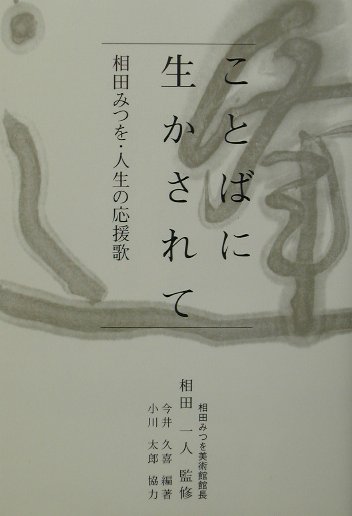 ことばに
生かされて
相田みつを・人生の応援歌
相田みつを美術館館長
相田 一人 監修
今井 久喜 編著
小川 太郎 協力